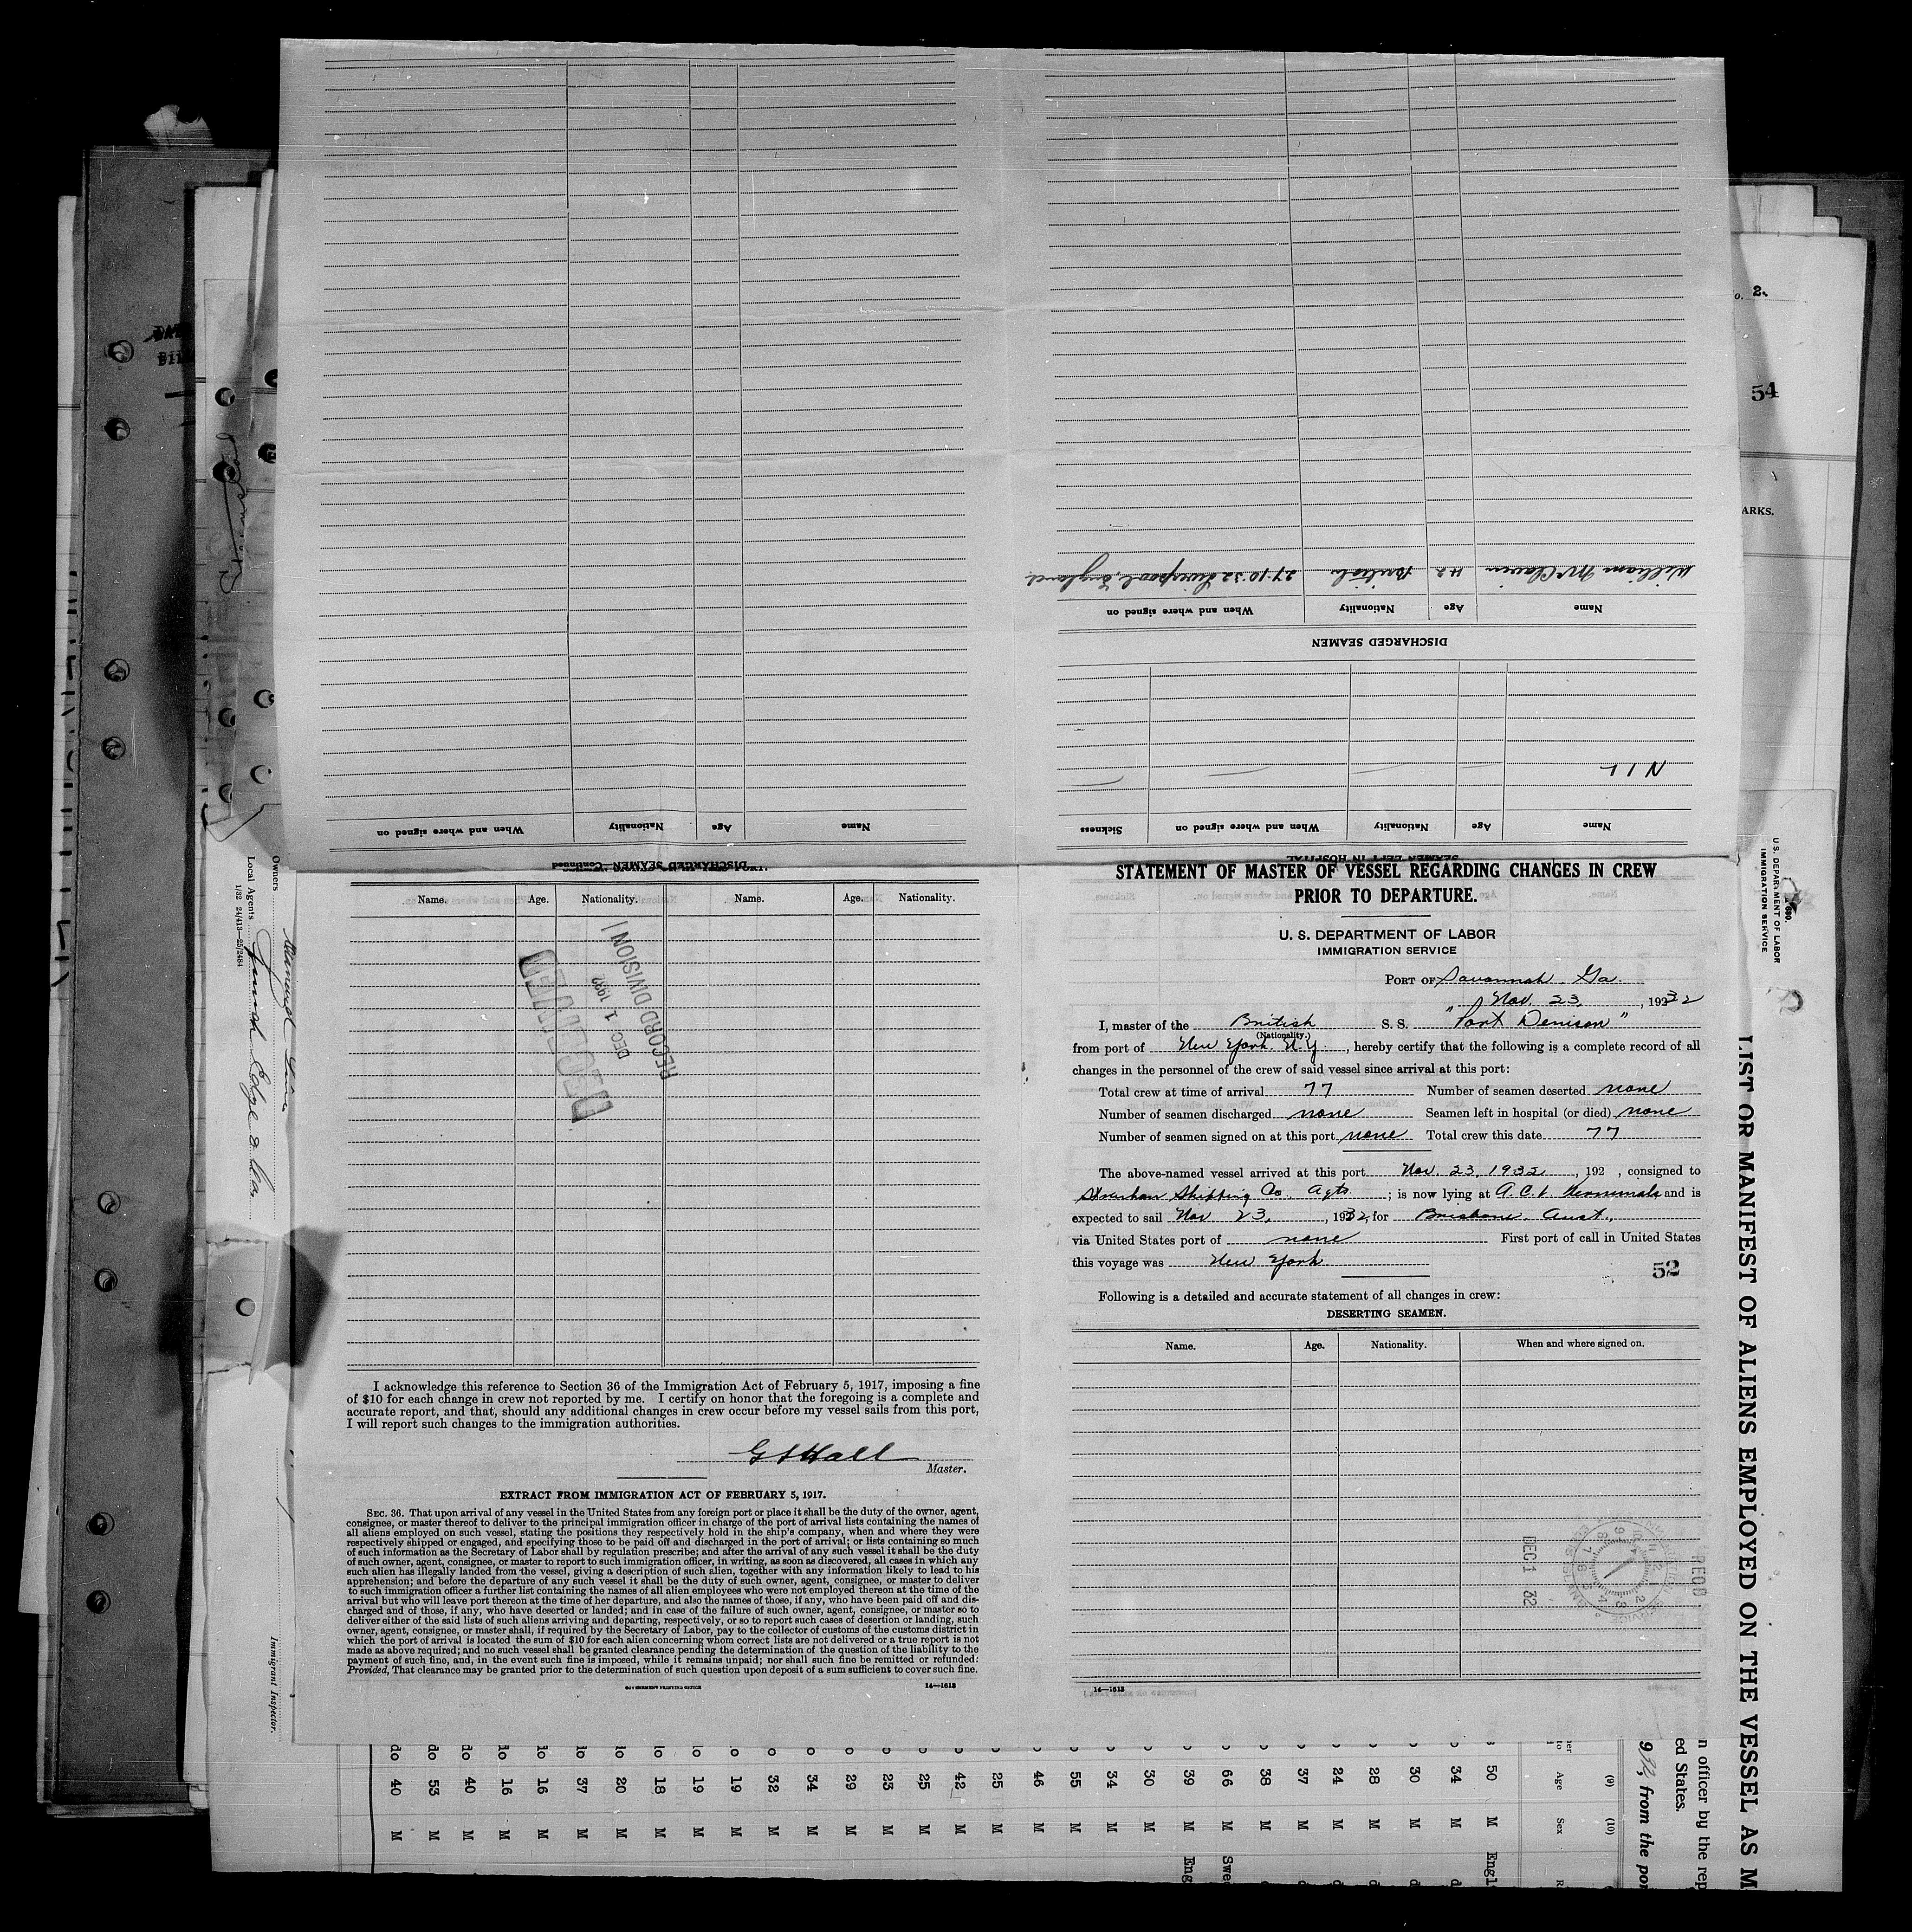 STATEMENT OF MASTER OF VESSEL REGARDING CHANGES IN CREW
PRIOR TO DEPARTURE.
U. S. DEPARTMENT OF LABOR
IMMIGRATION SERVICE
PORT OF Savannah, Ga.
Nov. 23, 1932
I, master of the British S. S. "Port Denison"
(Nationality.)
from port of New York, N.Y., hereby certify that the following is a complete record of all
changes in the personnel of the crew of said vessel since arrival at this port:
Total crew at time of arrival 77 Number of seamen deserted none
Number of seamen discharged none Seamen left in hospital (or died) none
Number of seamen signed on at this port none Total crew this date 77
The above-named vessel arrived at this port Nov. 23, 1932, 192 , consigned to
Strachan Shipping Co. Agts ; is now lying at A.C.L. Terminals and is
expected to sail Nov 23, 1932, for Brisbane, Aust.,
via United States port of none First port of call in United States
this voyage was New York
52
Following is a detailed and accurate statement of all changes in crew:
DESERTING SEAMEN.
Name. Age. Nationality. When and where signed on.
DEC 1 32
REC'D
14—1613
SEAMEN LEFT IN HOSPITAL
Name Age Nationality When and where signed on Sickness
NIL
DISCHARGED SEAMEN
Name Age Nationality When and where signed on
William 42 British 27.10.32 Liverpool, England.
DISCHARGED SEAMEN—Continued
Name Age Nationality When and where signed on
Name. Age. Nationality. Name. Age. Nationality.
RECEIVED
DEC 1 1932
RECORD DIVISION
I acknowledge this reference to Section 36 of the Immigration Act of February 5, 1917, imposing a fine
of $10 for each change in crew not reported by me. I certify on honor that the foregoing is a complete and
accurate report, and that, should any additional changes in crew occur before my vessel sails from this port,
I will report such changes to the immigration authorities.
Hall
Master.
EXTRACT FROM IMMIGRATION ACT OF FEBRUARY 5, 1917.
SEC. 36. That upon arrival of any vessel in the United States from any foreign port or place it shall be the duty of the owner, agent,
consignee, or master thereof to deliver to the principal immigration officer in charge of the port of arrival lists containing the names of
all aliens employed on such vessel, stating the positions they respectively hold in the ship's company, when and where they were
respectively shipped or engaged, and specifying those to be paid off and discharged in the port of arrival; or lists containing so much
of such information as the Secretary of Labor shall by regulation prescribe; and after the arrival of any such vessel it shall be the duty
of such owner, agent, consignee, or master to report to such immigration officer, in writing, as soon as discovered, all cases in which any
such alien has illegally landed from the vessel, giving a description of such alien, together with any information likely to lead to his
apprehension; and before the departure of any such vessel it shall be the duty of such owner, agent, consignee, or master to deliver
to such immigration officer a further list containing the names of all alien employees who were not employed thereon at the time of the
arrival but who will leave port thereon at the time of her departure, and also the names of those, if any, who have been paid off and dis-
charged and of those, if any, who have deserted or landed; and in case of the failure of such owner, agent, consignee, or master so to
deliver either of the said lists of such aliens arriving and departing, respectively, or so to report such cases of desertion or landing, such
owner, agent, consignee, or master shall, if required by the Secretary of Labor, pay to the collector of customs of the customs district in
which the port of arrival is located the sum of $10 for each alien concerning whom correct lists are not delivered or a true report is not
made as above required; and no such vessel shall be granted clearance pending the determination of the question of the liability to the
payment of such fine, and, in the event such fine is imposed, while it remains unpaid; nor shall such fine be remitted or refunded:
Provided, That clearance may be granted prior to the determination of such question upon deposit of a sum sufficient to cover such fine.
GOVERNMENT PRINTING OFFICE
14—1613
Owners
Local Agents
1/32 24/413—25/2484
Immigrant Inspector.
54
ARKS.
U. S. DEPARTMENT OF LABOR
IMMIGRATION SERVICE
LIST OR MANIFEST OF ALIENS EMPLOYED ON THE VESSEL AS M
n officer by the rep
ed States.
from the por
(9) (10)
Age Sex
50 M Engl
34 M
30 M
28 M
24 M
37 M
38 M
66 M Swe
39 M Eng
30 M
34 M
55 M
46 M
25 M
42 M
25 M
23 M
29 M
34 M
32 M
19 M
19 M
18 M
20 M
37 M
16 M
16 M
40 M
53 M
do 40 M